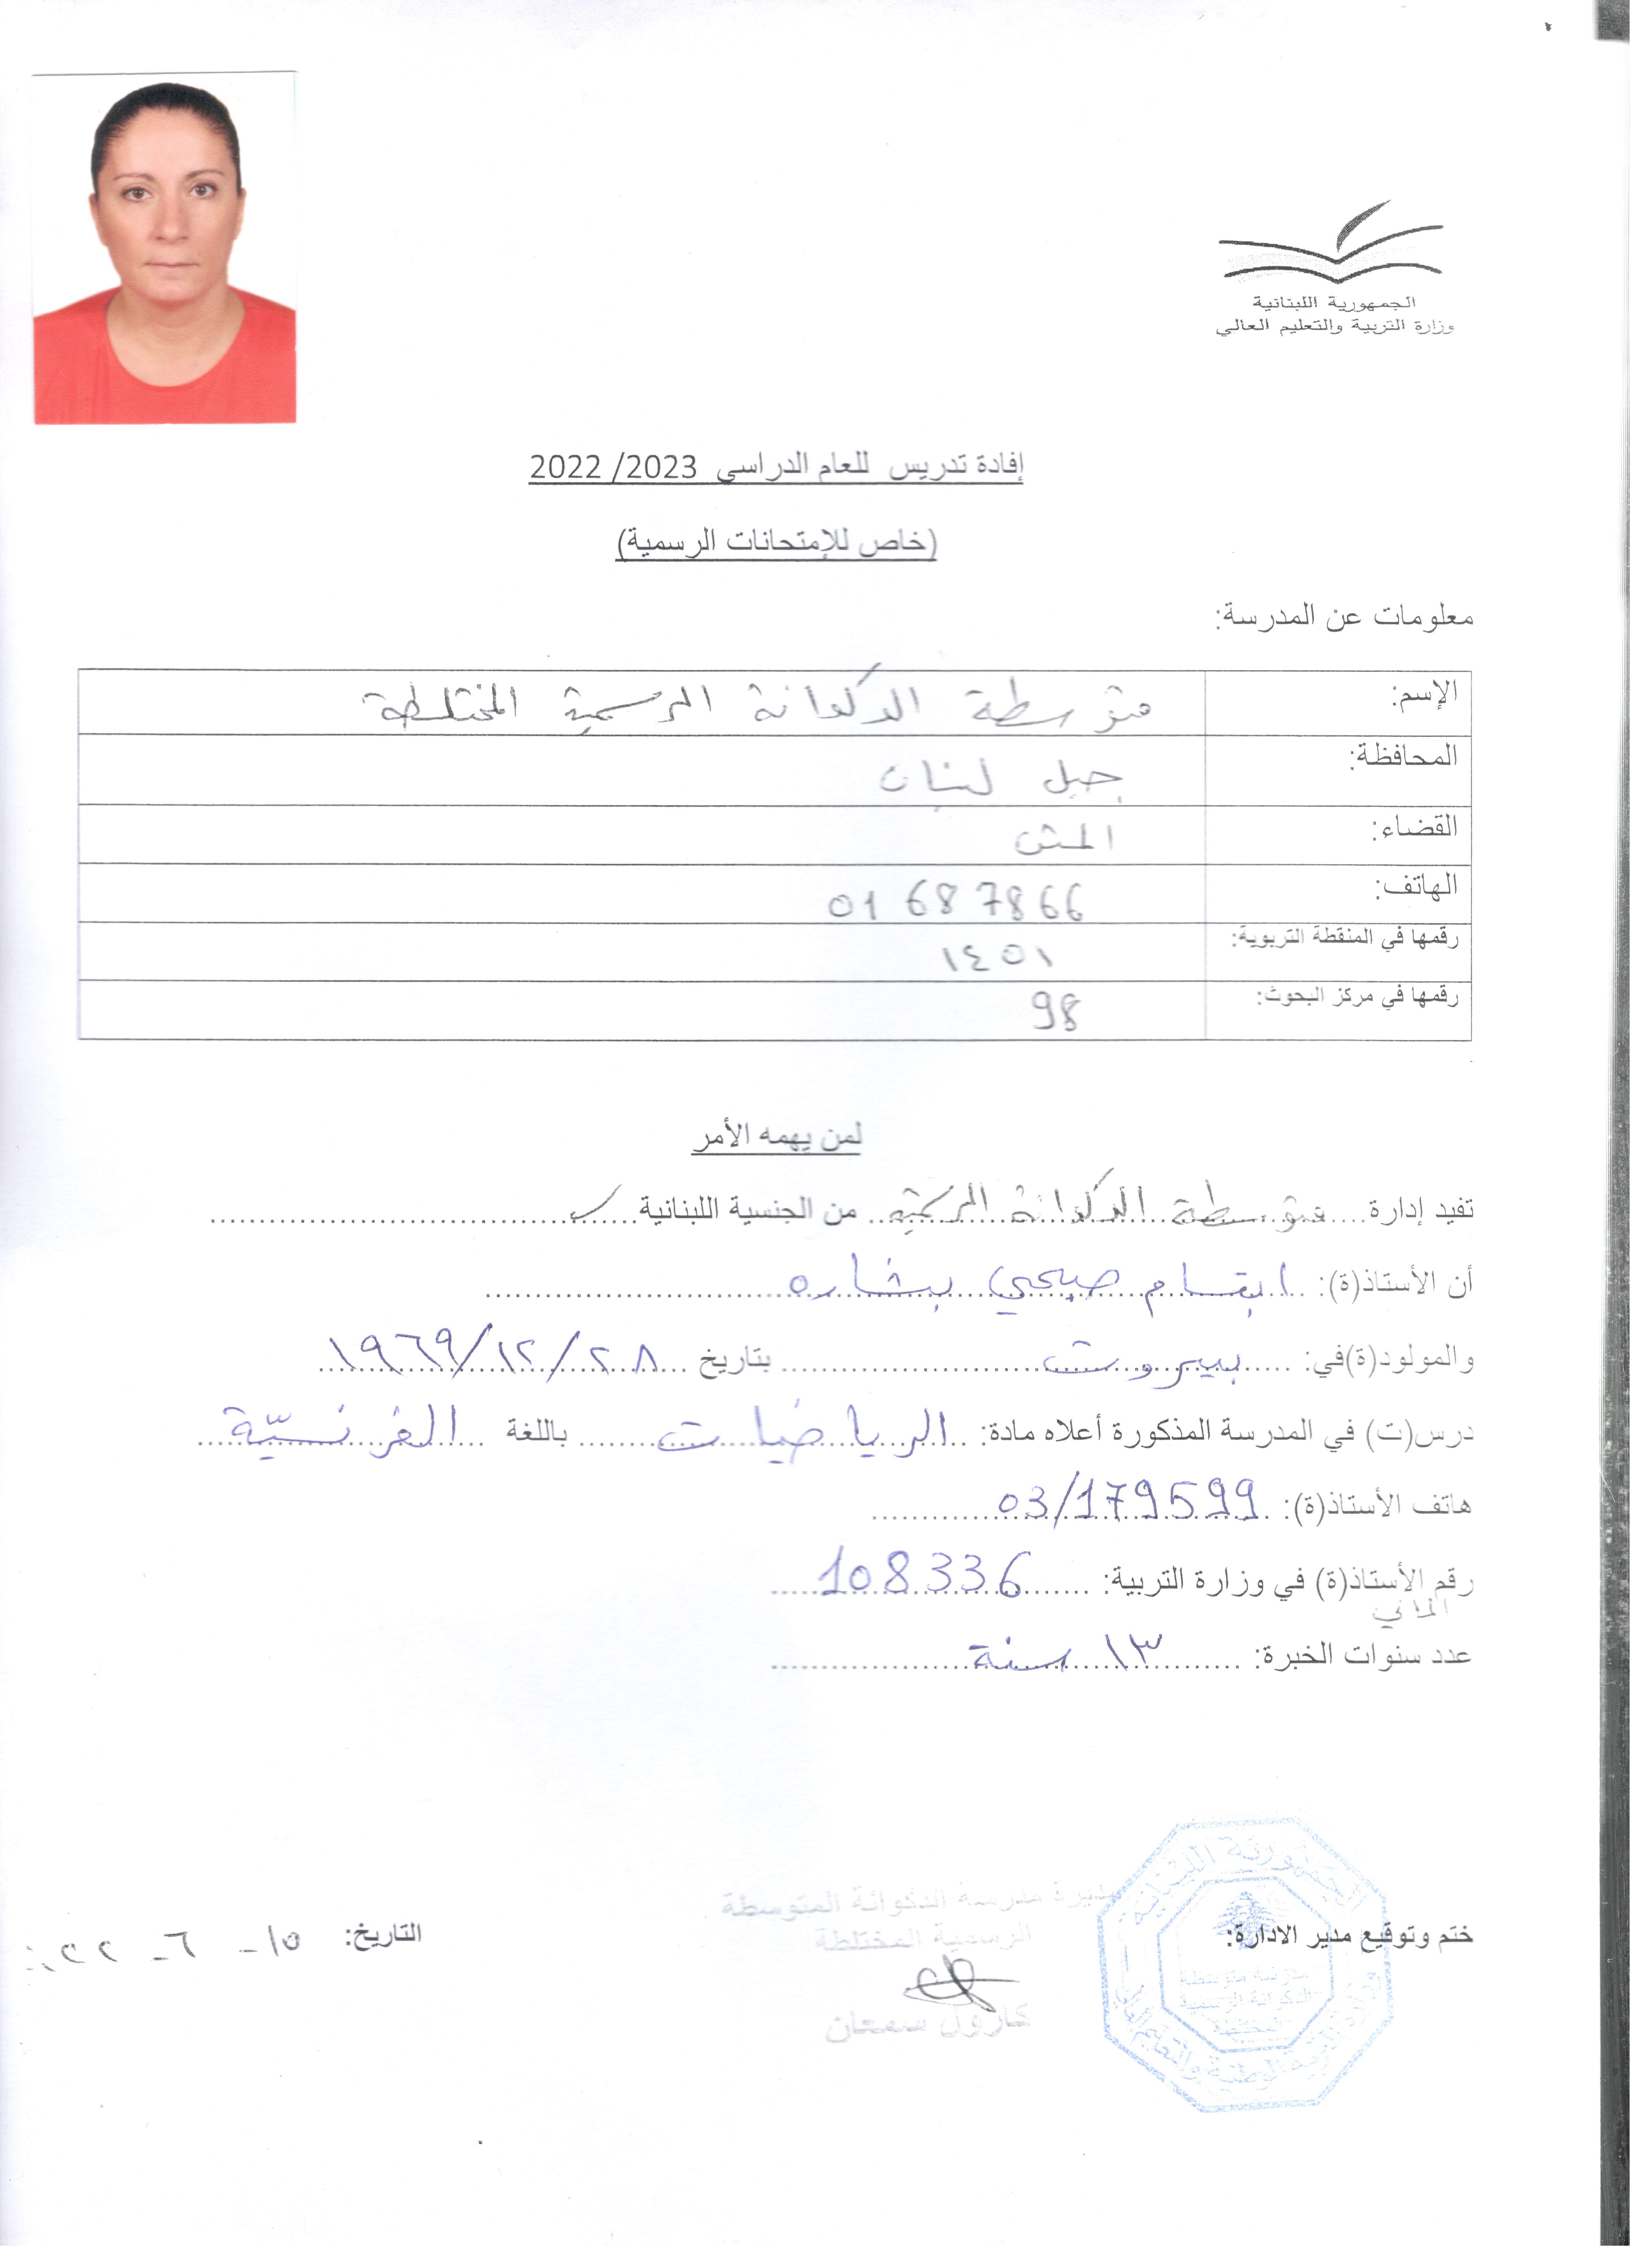 الجمهورية اللبنانية
وزارة التربية والتعليم العالي
إفادة تدريس للعام الدراسي 2023/ 2022
(خاص للإمتحانات الرسمية)
معلومات عن المدرسة:
الإسم: متوسطة الدكوانة الرسمية المختلطة
المحافظة: جبل لبنان
القضاء: المتن
الهاتف: 01 687866
رقمها في المنقطة التربوية: ١٤٥١
رقمها في مركز البحوث: 98
لمن يهمه الأمر
تفيد إدارة متوسطة الدكوانة الرسمية من الجنسية اللبنانية
أن الأستاذ(ة): ابتسام صبحي بشاره
والمولود(ة)في: بيروت بتاريخ ٢٨/١٢/١٩٦٩
درس(ت) في المدرسة المذكورة أعلاه مادة: الرياضيات باللغة الفرنسيّة
هاتف الأستاذ(ة): 03/179599
رقم الأستاذ(ة) في وزارة التربية: 108336
المالي
عدد سنوات الخبرة: ١٣ سنة
مديرة مدرسة الدكوانة المتوسطة
الرسمية المختلطة
كارول سمعان
ختم وتوقيع مدير الادارة:
الجمهورية اللبنانية
وزارة التربية الوطنية والتعليم العالي
مدرسة متوسطة
الدكوانة الرسمية
المختلطة
التاريخ: ١٥ - ٦ -